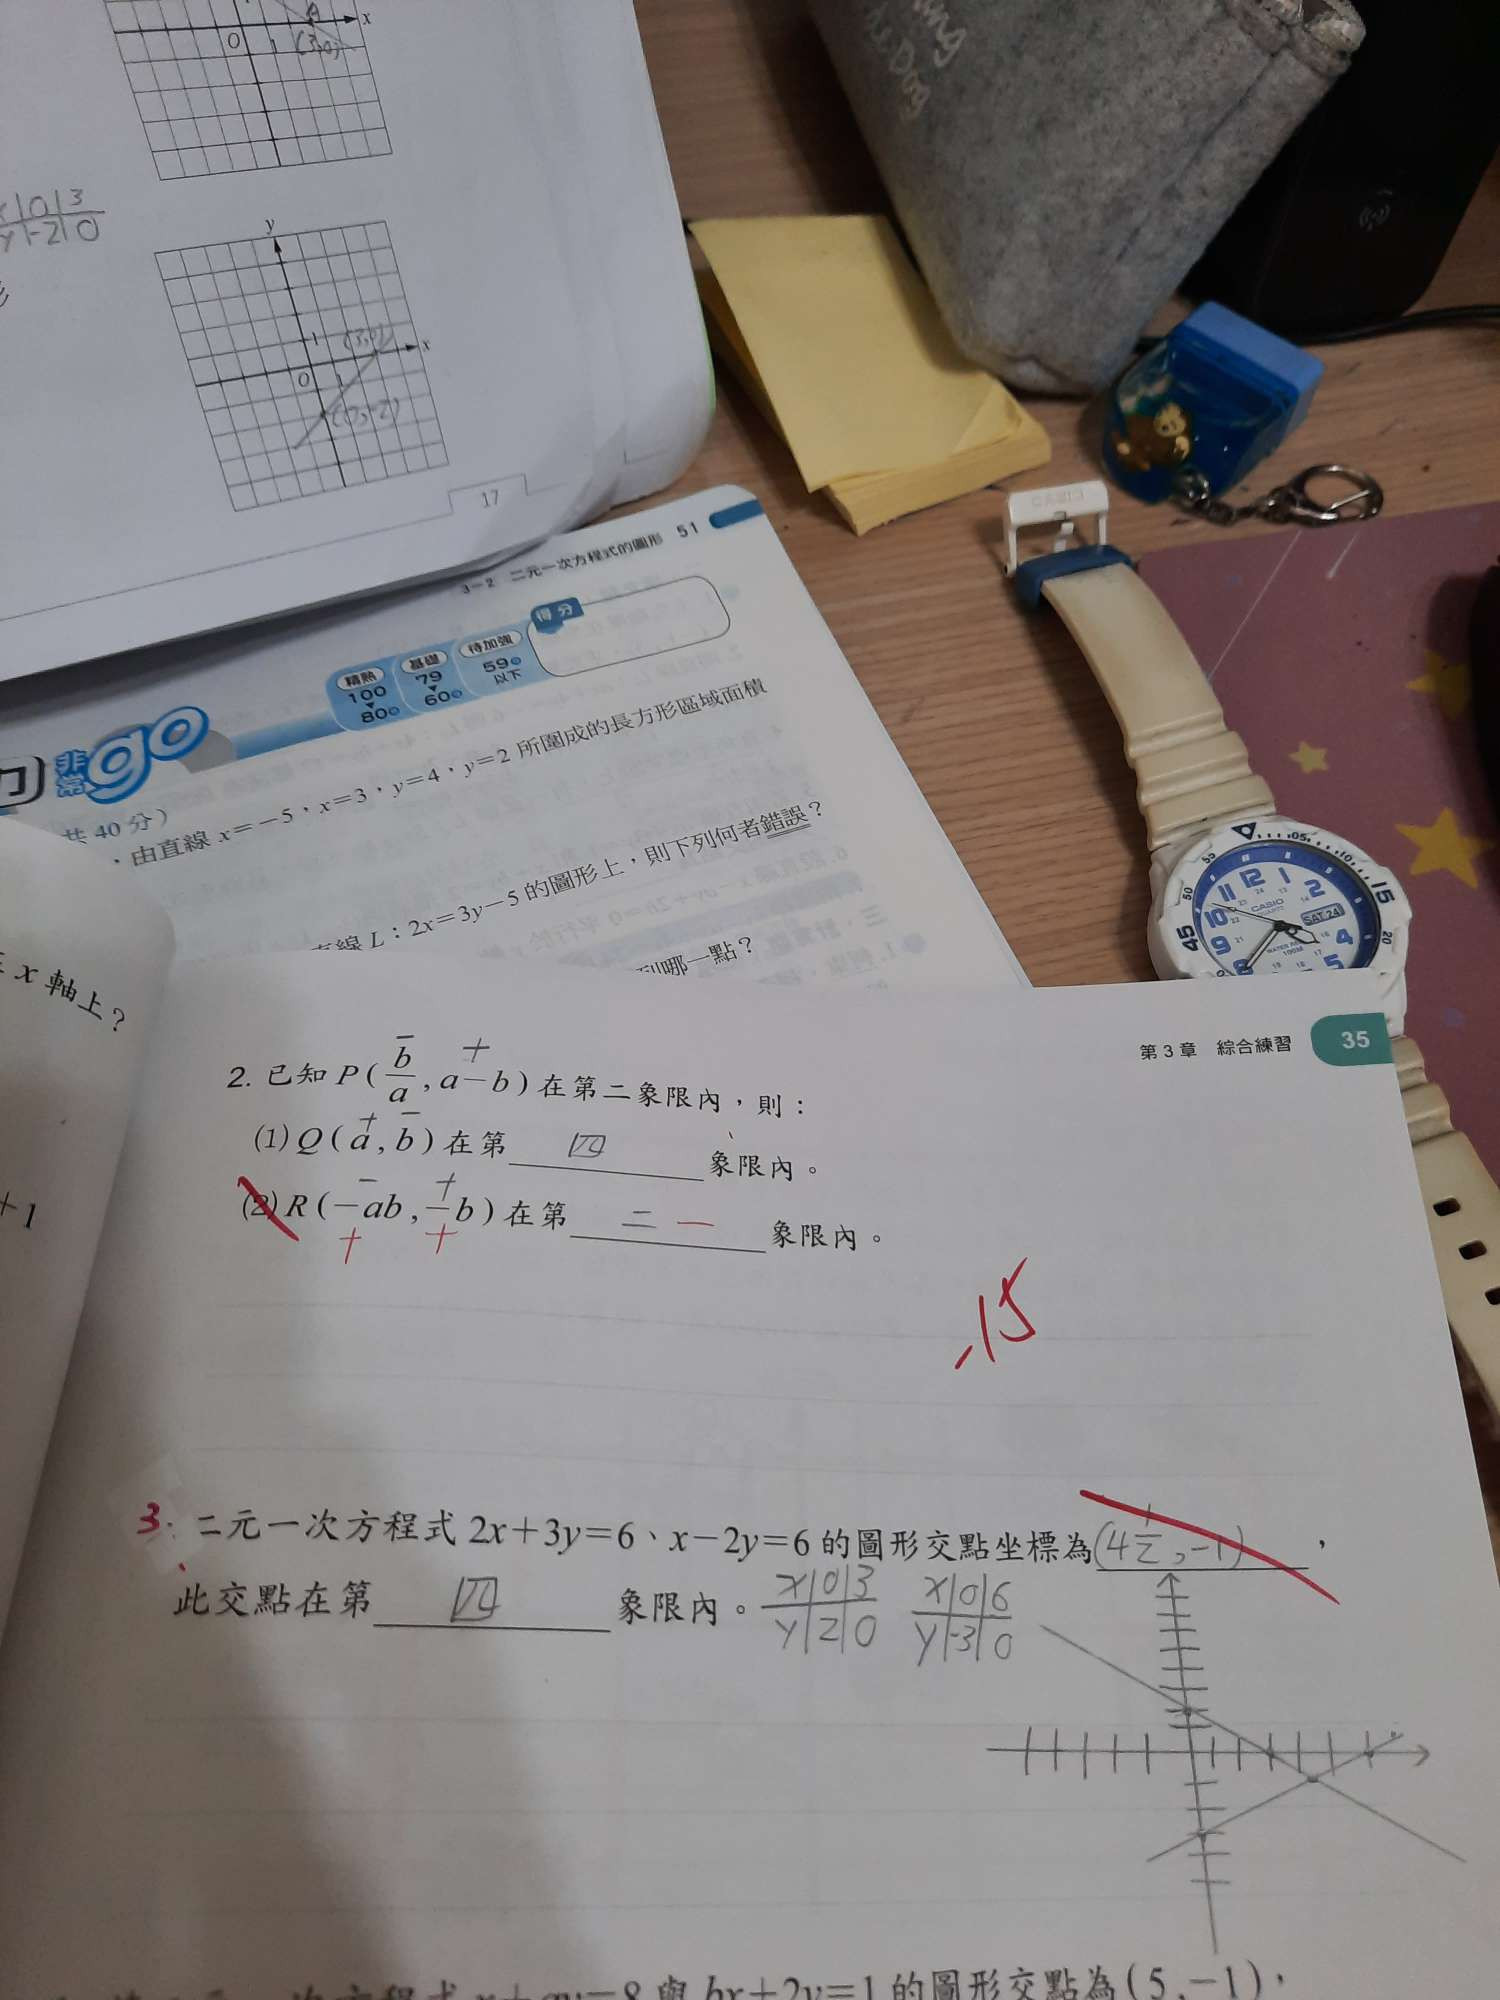 A
x
O 1
(3,0)
x 0 3
y -2 0
y
1
(3,0)
x
O 1
17
3-2 二元一次方程式的圖形 51
得分
精熟 100 80
基礎 79 60
待加強 59 以下
非常 go
共 40 分)
,由直線 x=-5、x=3、y=4、y=2 所圍成的長方形區域面積
直線 L:2x=3y-5 的圖形上,則下列何者錯誤?
到哪一點?
x 軸上?
+1
第 3 章 綜合練習 35
- +
2. 已知 P( b/a , a-b ) 在第二象限內,則:
+ -
(1) Q( a , b ) 在第 四 象限內。
- +
(2) R( -ab , -b ) 在第 二 一 象限內。
+ +
-15
3. 二元一次方程式 2x+3y=6、x-2y=6 的圖形交點坐標為 (4 1/2, -1) ,
此交點在第 四 象限內。
x 0 3
y 2 0
x 0 6
y -3 0
次方程式 x+ay=8 與 bx+2y=1 的圖形交點為 (5,-1),
CASIO
QUARTZ
SAT 24
WATER RES
100M
55 05 10 15 20 45 50
11 12 1 2 4 5 8 9 10